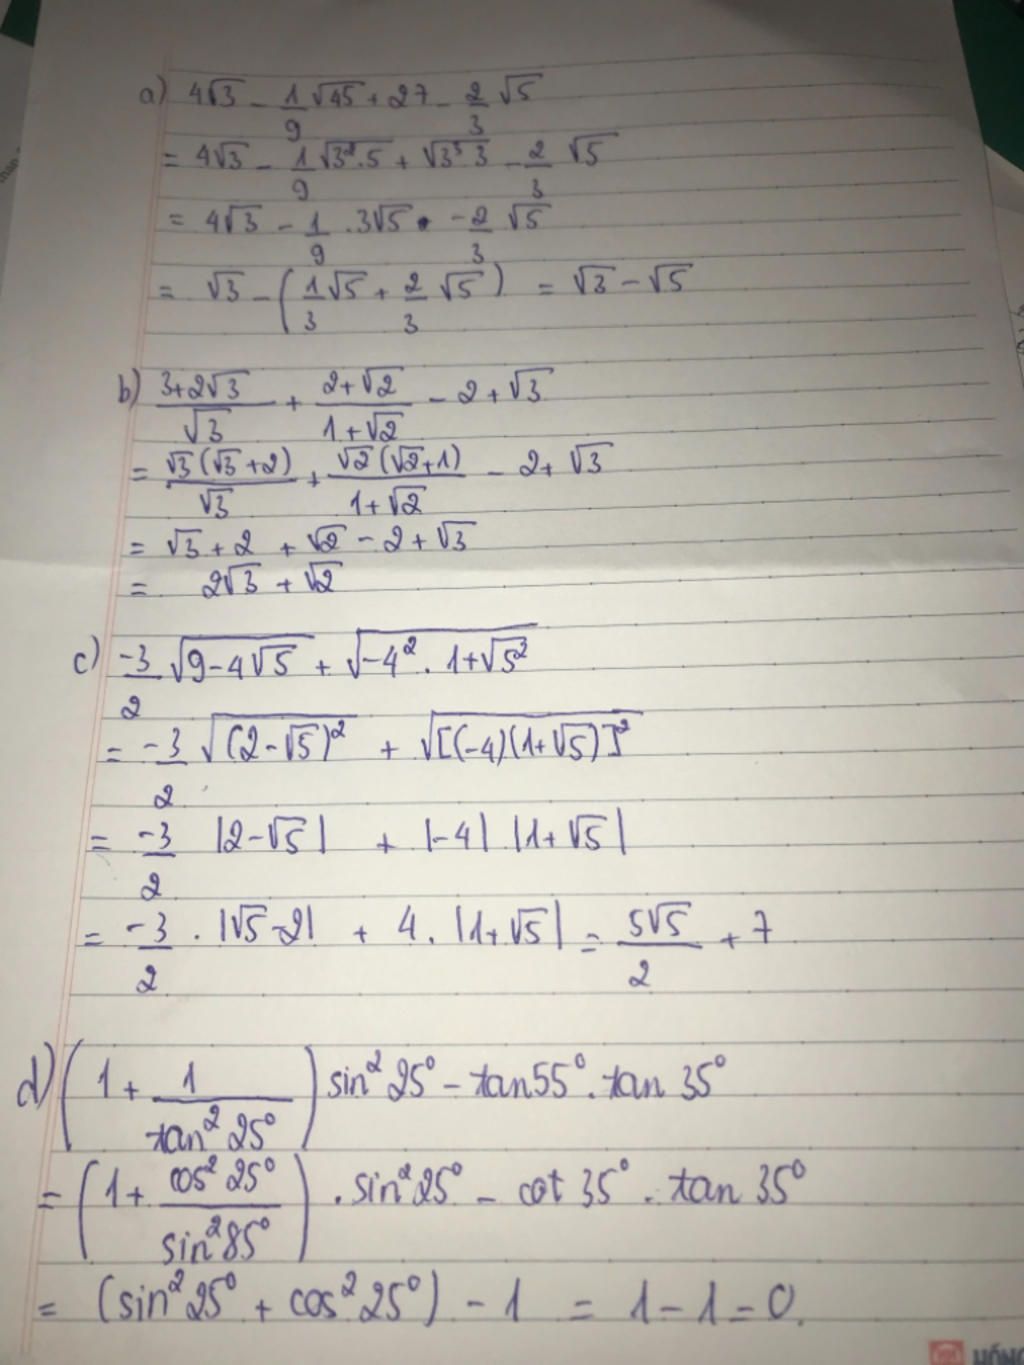 a) 4√3 - 1/9 √45 + 27 - 2/3 √5
= 4√3 - 1/9 √3².5 + √3³ 3 - 2/3 √5
= 4√3 - 1/9 .3√5 - 2/3 √5
= √3 - (1/3 √5 + 2/3 √5) = √3 - √5
b) (3+2√3)/√3 + (2+√2)/(1+√2) - 2 + √3
= √3(√3+2)/√3 + √2(√2+1)/(1+√2) - 2 + √3
= √3 + 2 + √2 - 2 + √3
= 2√3 + √2
c) -3/2 √(9-4√5) + √(-4² . 1+√5²)
= -3/2 √(2-√5)² + √[(-4)(1+√5)]²
= -3/2 |2-√5| + |-4| |1+√5|
= -3/2 . |√5-2| + 4. |1+√5| = 5√5/2 + 7
d) (1 + 1/tan² 25°) sin² 25° - tan55° . tan 35°
= (1 + cos² 25°/sin² 85°) . sin² 25° - cot 35° . tan 35°
= (sin² 25° + cos² 25°) - 1 = 1 - 1 = 0.
HỒNG